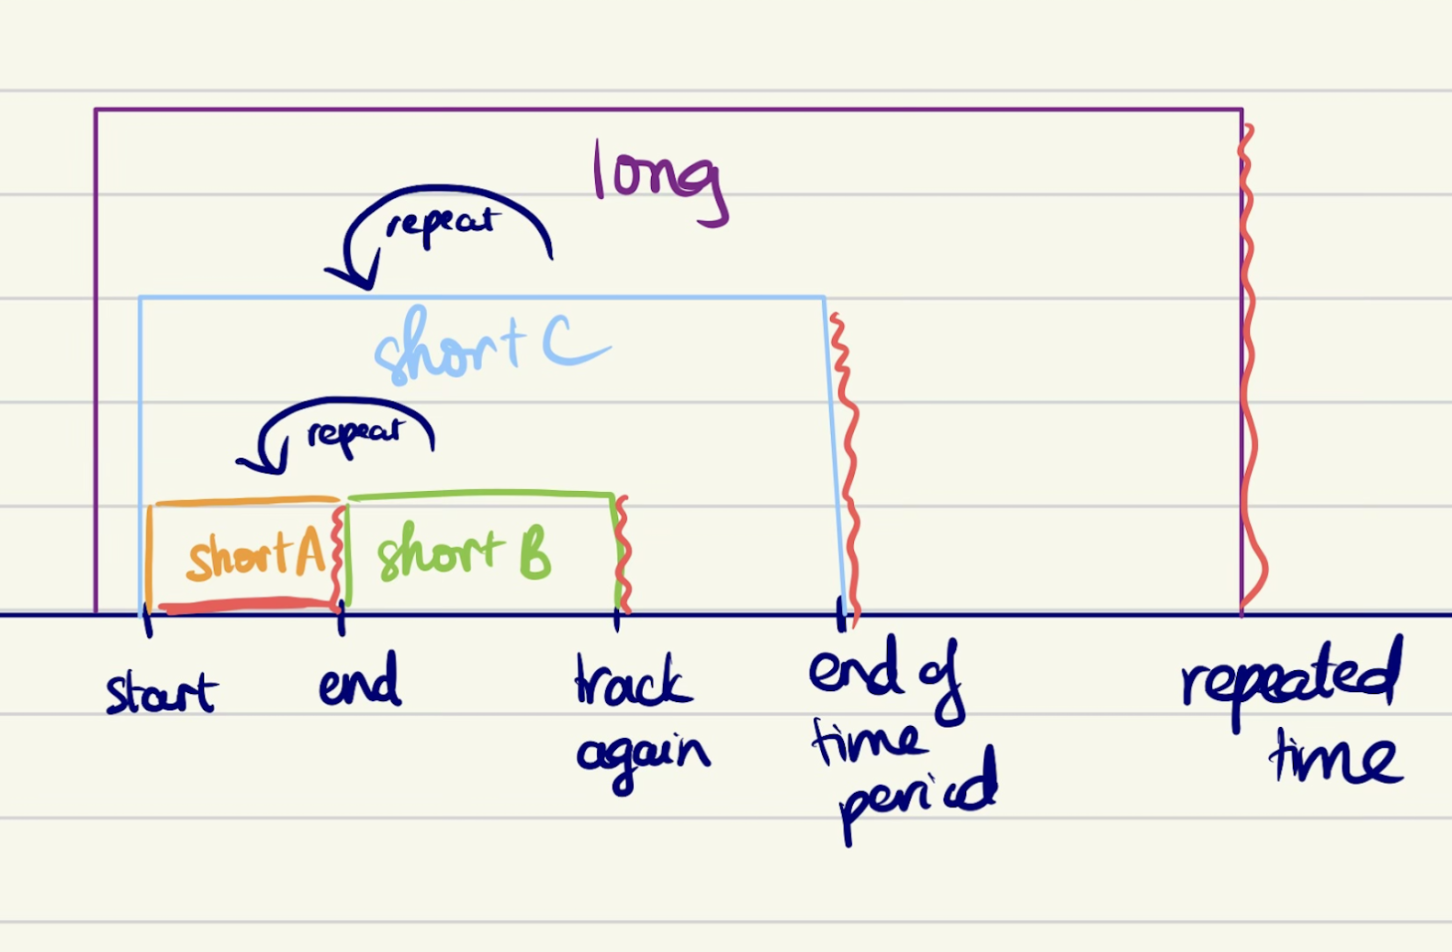 long
repeat
short C
repeat
short A
short B
start
end
track
again
end of
time
period
repeated
time